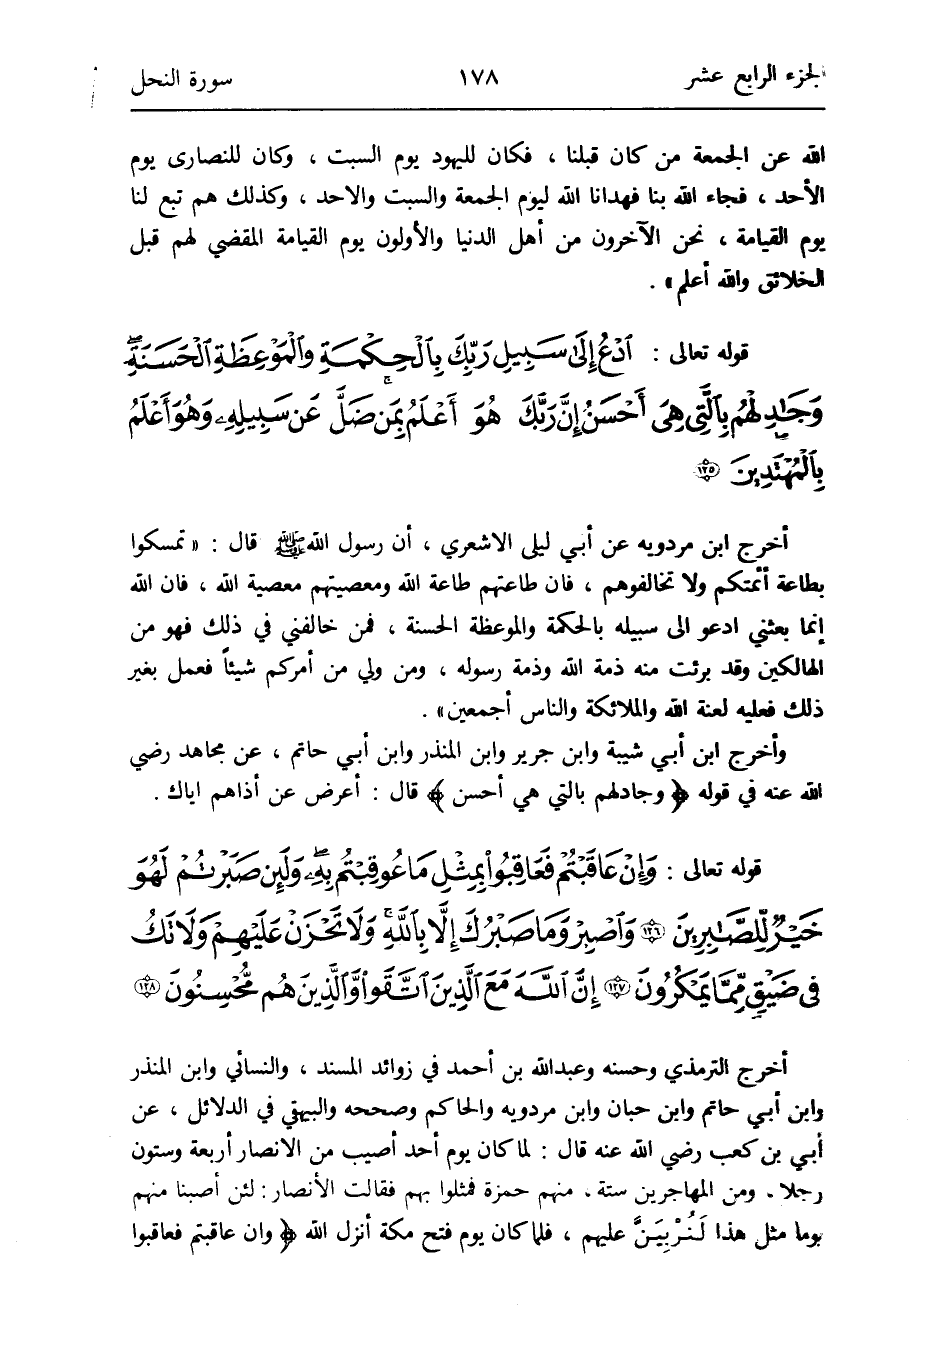 الجزء الرابع عشر ١٧٨ سورة النحل
الله عن الجمعة من كان قبلنا ، فكان لليهود يوم السبت ، وكان للنصارى يوم
الأحد ، فجاء الله بنا فهدانا الله ليوم الجمعة والسبت والاحد ، وكذلك هم تبع لنا
يوم القيامة ، نحن الآخرون من أهل الدنيا والأولون يوم القيامة المقضي لهم قبل
الخلائق والله أعلم» .
قوله تعالى : ٱدْعُ إِلَىٰ سَبِيلِ رَبِّكَ بِٱلْحِكْمَةِ وَٱلْمَوْعِظَةِ ٱلْحَسَنَةِ ۖ
وَجَٰدِلْهُم بِٱلَّتِى هِىَ أَحْسَنُ ۚ إِنَّ رَبَّكَ هُوَ أَعْلَمُ بِمَن ضَلَّ عَن سَبِيلِهِۦ وَهُوَ أَعْلَمُ
بِٱلْمُهْتَدِينَ ١٢٥
أخرج ابن مردويه عن أبي ليلى الاشعري ، أن رسول الله ﷺ قال : «تمسكوا
بطاعة أئمتكم ولا تخالفوهم ، فان طاعتهم طاعة الله ومعصيتهم معصية الله ، فان الله
إنما بعثني ادعو الى سبيله بالحكمة والموعظة الحسنة ، فمن خالفني في ذلك فهو من
الهالكين وقد برئت منه ذمة الله وذمة رسوله ، ومن ولي من أمركم شيئاً فعمل بغير
ذلك فعليه لعنة الله والملائكة والناس أجمعين» .
وأخرج ابن أبي شيبة وابن جرير وابن المنذر وابن أبي حاتم ، عن مجاهد رضي
الله عنه في قوله ﴿ وجادلهم بالتي هي أحسن ﴾ قال : أعرض عن أذاهم اياك .
قوله تعالى : وَإِنْ عَاقَبْتُمْ فَعَاقِبُوا۟ بِمِثْلِ مَا عُوقِبْتُم بِهِۦ ۖ وَلَئِن صَبَرْتُمْ لَهُوَ
خَيْرٌ لِّلصَّٰبِرِينَ ١٢٦ وَٱصْبِرْ وَمَا صَبْرُكَ إِلَّا بِٱللَّهِ ۚ وَلَا تَحْزَنْ عَلَيْهِمْ وَلَا تَكُ
فِى ضَيْقٍ مِّمَّا يَمْكُرُونَ ١٢٧ إِنَّ ٱللَّهَ مَعَ ٱلَّذِينَ ٱتَّقَوا۟ وَّٱلَّذِينَ هُم مُّحْسِنُونَ ١٢٨
أخرج الترمذي وحسنه وعبدالله بن أحمد في زوائد المسند ، والنسائي وابن المنذر
وابن أبي حاتم وابن حبان وابن مردويه والحاكم وصححه والبيهقي في الدلائل ، عن
أبي بن كعب رضي الله عنه قال : لما كان يوم أحد أصيب من الانصار أربعة وستون
رجلا . ومن المهاجرين ستة . منهم حمزة فمثلوا بهم فقالت الأنصار : لئن أصبنا منهم
يوما مثل هذا لَنُرْبِيَنَّ عليهم ، فلما كان يوم فتح مكة أنزل الله ﴿ وان عاقبتم فعاقبوا